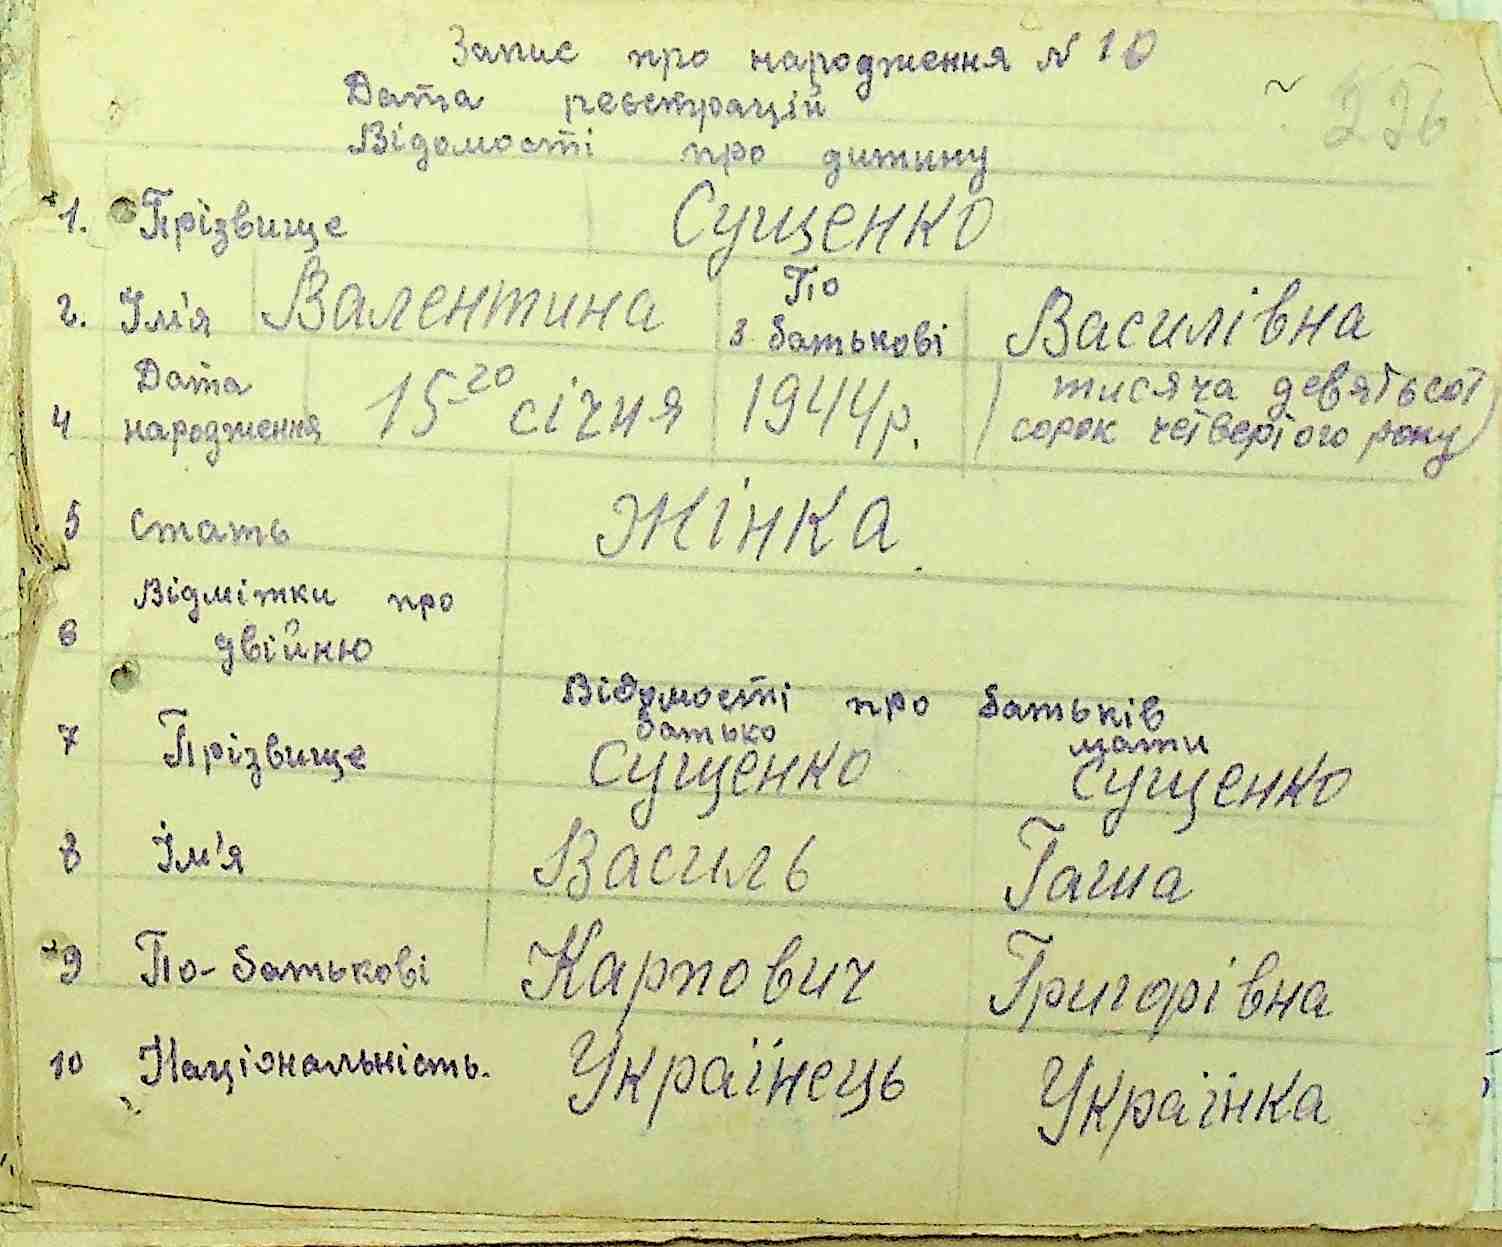 Запис про народження N 10
Дата реєстрацій
Відомості про дитину
226
1. Прізвище Сущенко
2. Ім'я Валентина 3 По батькові Василівна
4 Дата народження 15-го січня 1944 р. (тисяча девятьсот
сорок четвертого року)
5 стать Жінка.
6 Відмітки про
двійню
Відомості про батьків
батько мати
7 Прізвище Сущенко Сущенко
8 Ім'я Василь Гаша
9 По-батькові Карпович Григорівна
10 Національність. Українець Українка